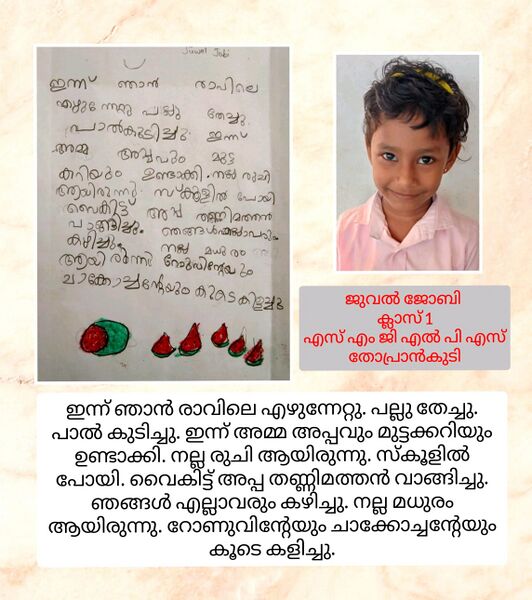 Juwel Jobi
ഇന്ന് ഞാൻ രാവിലെ
എഴുന്നേറ്റു പല്ലു തേച്ചു
പാൽകുടിച്ചു. ഇന്ന്
അമ്മ അപ്പവും മുട്ട
കറിയും ഉണ്ടാക്കി. നല്ല രുചി
ആയിരുന്നു. സ്കൂളിൽ പോയി
വൈകിട്ട് അപ്പ തണ്ണിമത്തൻ
വാങ്ങിച്ചു. ഞങ്ങൾ
കഴിച്ചു. നല്ല മധുരം
ആയിരുന്നു. റോണുവിൻ്റേയും
ചാക്കോച്ചൻ്റേയും കൂടെ കളിച്ചു
ജുവൽ ജോബി
ക്ലാസ് 1
എസ് എം ജി എൽ പി എസ്
തോപ്രാൻകുടി
ഇന്ന് ഞാൻ രാവിലെ എഴുന്നേറ്റു. പല്ലു തേച്ചു.
പാൽ കുടിച്ചു. ഇന്ന് അമ്മ അപ്പവും മുട്ടക്കറിയും
ഉണ്ടാക്കി. നല്ല രുചി ആയിരുന്നു. സ്കൂളിൽ
പോയി. വൈകിട്ട് അപ്പ തണ്ണിമത്തൻ വാങ്ങിച്ചു.
ഞങ്ങൾ എല്ലാവരും കഴിച്ചു. നല്ല മധുരം
ആയിരുന്നു. റോണുവിൻ്റേയും ചാക്കോച്ചൻ്റേയും
കൂടെ കളിച്ചു.